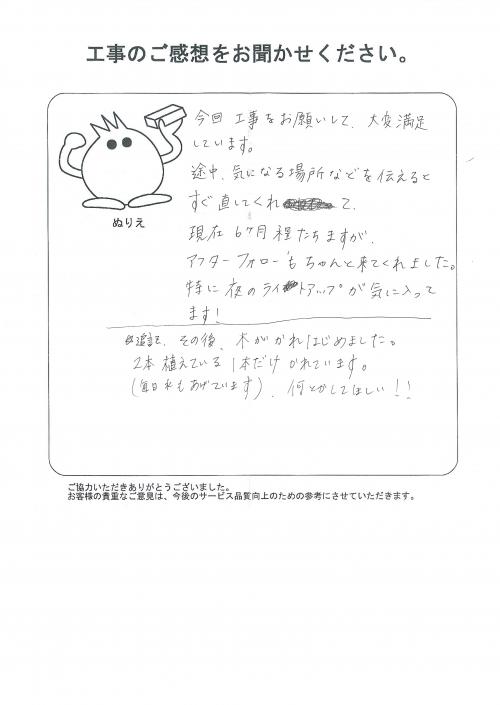 工事のご感想をお聞かせください。
今回 工事をお願いして、大変満足
しています。
途中、気になる場所などを伝えると
すぐ直してくれ て、
現在 6ヶ月 程たちますが、
アフターフォローもちゃんと来てくれました。
特に 夜の ライトアップが 気に入って
ます!
ぬりえ
追記、その後、木がかれはじめました。
2本 植えている 1本だけ かれています。
(毎日 水もあげています)、何とかしてほしい!!
ご協力いただきありがとうございました。
お客様の貴重なご意見は、今後のサービス品質向上のための参考にさせていただきます。